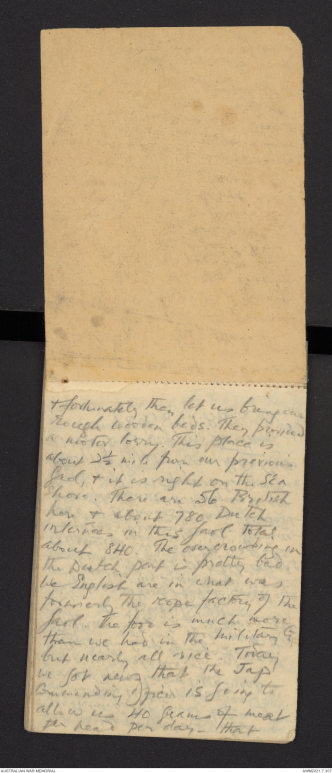 & fortunately they let us bring our
rough wooden beds. They provided
a motor lorry. This place is
about 2½ mils from our previous
Gaol, & it is right on the Sea
Shore. There are 56 British
here & about 780 Dutch
internees in this Gaol total
about 840. The overcrowding in
the Dutch part is pretty bad
we English are in what was
formerly the rope factory of the
Gaol. The food is much more
than we had in the Military G
but nearly all rice. Today
we got news that the Jap
Commanding Officer is going to
allow us 40 grams of meat
per head per day - that
AUSTRALIAN WAR MEMORIAL